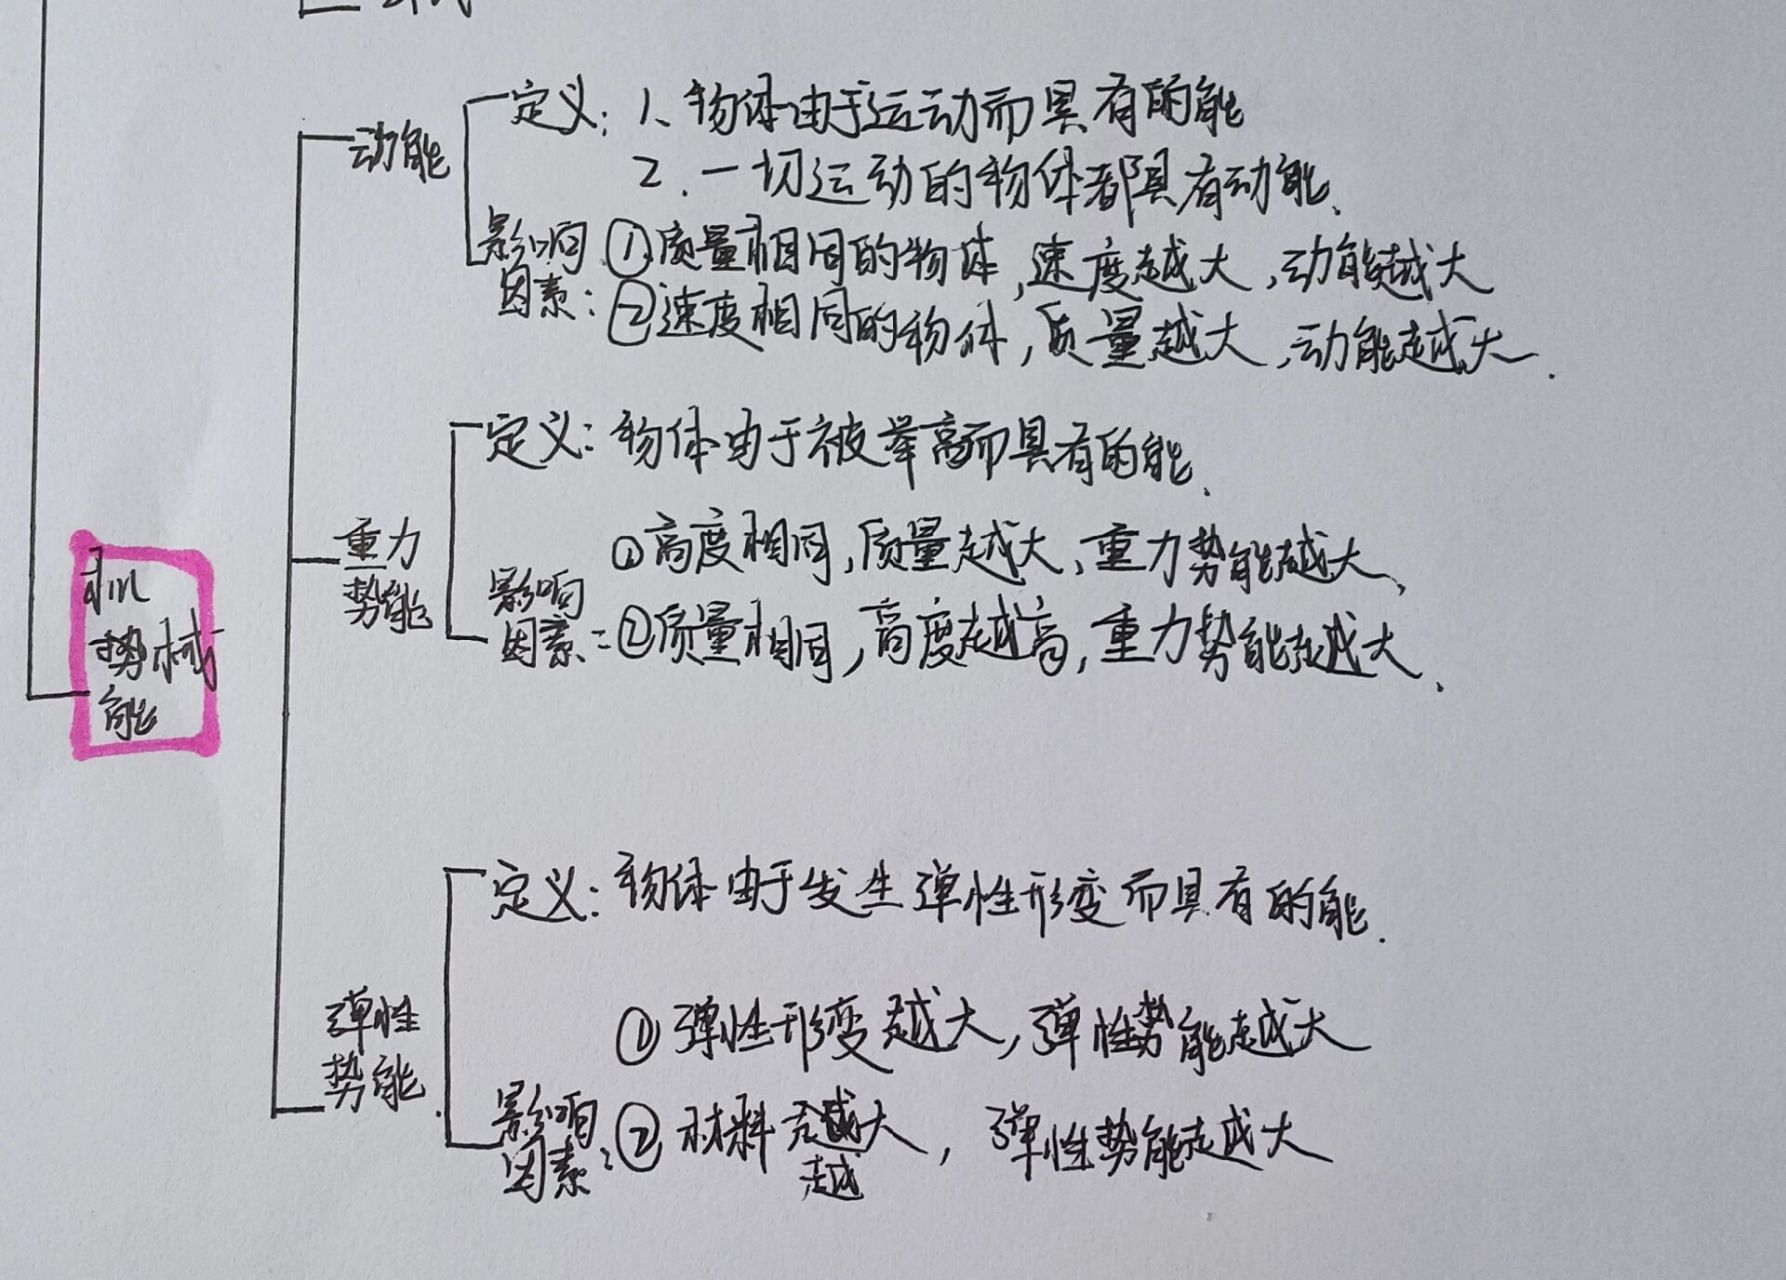 动能
定义：1、物体由于运动而具有的能
2.一切运动的物体都具有动能、
影响
因素：
①质量相同的物体，速度越大，动能越大
②速度相同的物体，质量越大，动能越大.
重力
势能
定义：物体由于被举高而具有的能、
影响
因素：
①高度相同，质量越大、重力势能越大、
②质量相同，高度越高，重力势能越大、
机
势械
能
弹性
势能.
定义：物体由于发生弹性形变而具有的能.
影响
因素：
①弹性形变越大，弹性势能越大
②材料越大，弹性势能越大
越